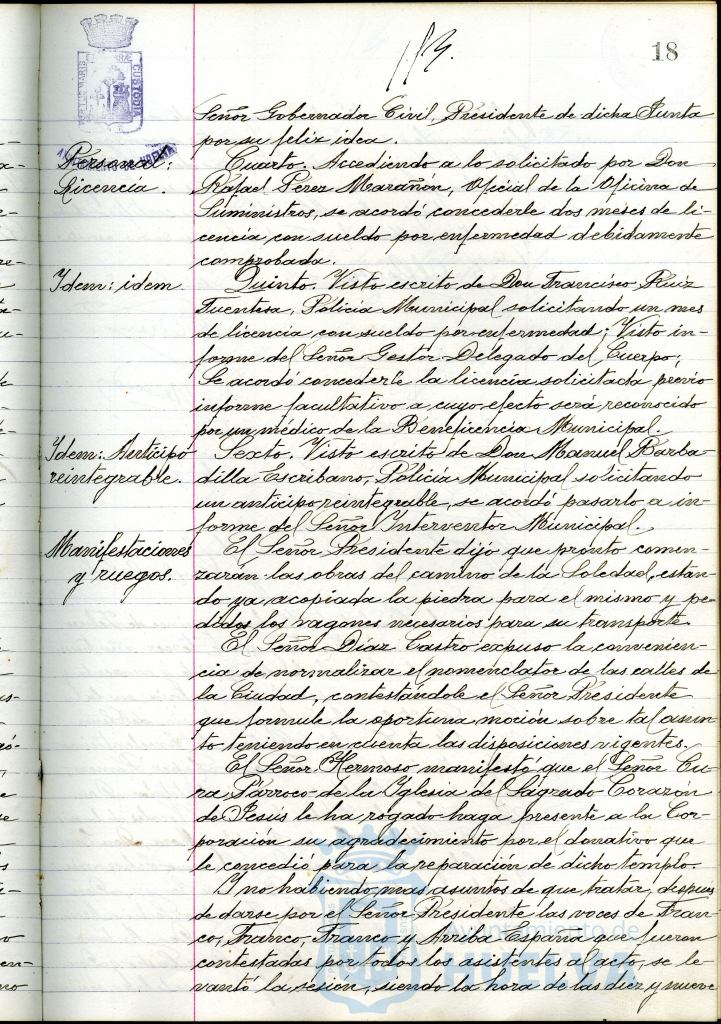 113.
18
PORTUS MARIS ET TERRÆ CUSTODIA
AYUNTAMIENTO DE HUELVA
Señor Gobernador Civil, Presidente de dicha Junta
por su feliz idea.
Personal:
Licencia.
Cuarto. Accediendo a lo solicitado por Don
Rafael Pérez Marañón, Oficial de la Oficina de
Suministros, se acordó concederle dos meses de li-
cencia con sueldo por enfermedad debidamente
comprobada.
Idem: idem.
Quinto. Visto escrito de Don Francisco Ruiz
Fuentesa, Policía Municipal solicitando un mes
de licencia con sueldo por enfermedad; Visto in-
forme del Señor Gestor Delegado del Cuerpo;
Se acordó concederle la licencia solicitada previo
informe facultativo a cuyo efecto será reconocido
por un médico de la Beneficencia Municipal.
Idem: Anticipo
reintegrable.
Sexto. Visto escrito de Don Manuel Barba-
dilla Escribano, Policía Municipal solicitando
un anticipo reintegrable, se acordó pasarlo a in-
forme del Señor Interventor Municipal.
Manifestaciones
y ruegos.
El Señor Presidente dijo que pronto comen-
zarán las obras del camino de la Soledad, estan-
do ya acopiada la piedra para el mismo y pe-
didos los vagones necesarios para su transporte.
El Señor Díaz Castro expuso la convenien-
cia de normalizar el nomenclator de las calles de
la Ciudad, contestándole el Señor Presidente
que formule la oportuna moción sobre tal asun-
to teniendo en cuenta las disposiciones vigentes.
El Señor Hermoso manifestó que el Señor Cu-
ra Párroco de la Iglesia del Sagrado Corazón
de Jesús le ha rogado haga presente a la Cor-
poración su agradecimiento por el donativo que
le concedió para la reparación de dicho templo.
Y no habiendo mas asuntos de que tratar, después
de darse por el Señor Presidente las voces de Fran-
co, Franco, Franco y Arriba España que fueron
contestadas por todos los asistentes al acto, se le-
vantó la sesión, siendo la hora de las diez y nueve
Ayuntamiento de
HUELVA